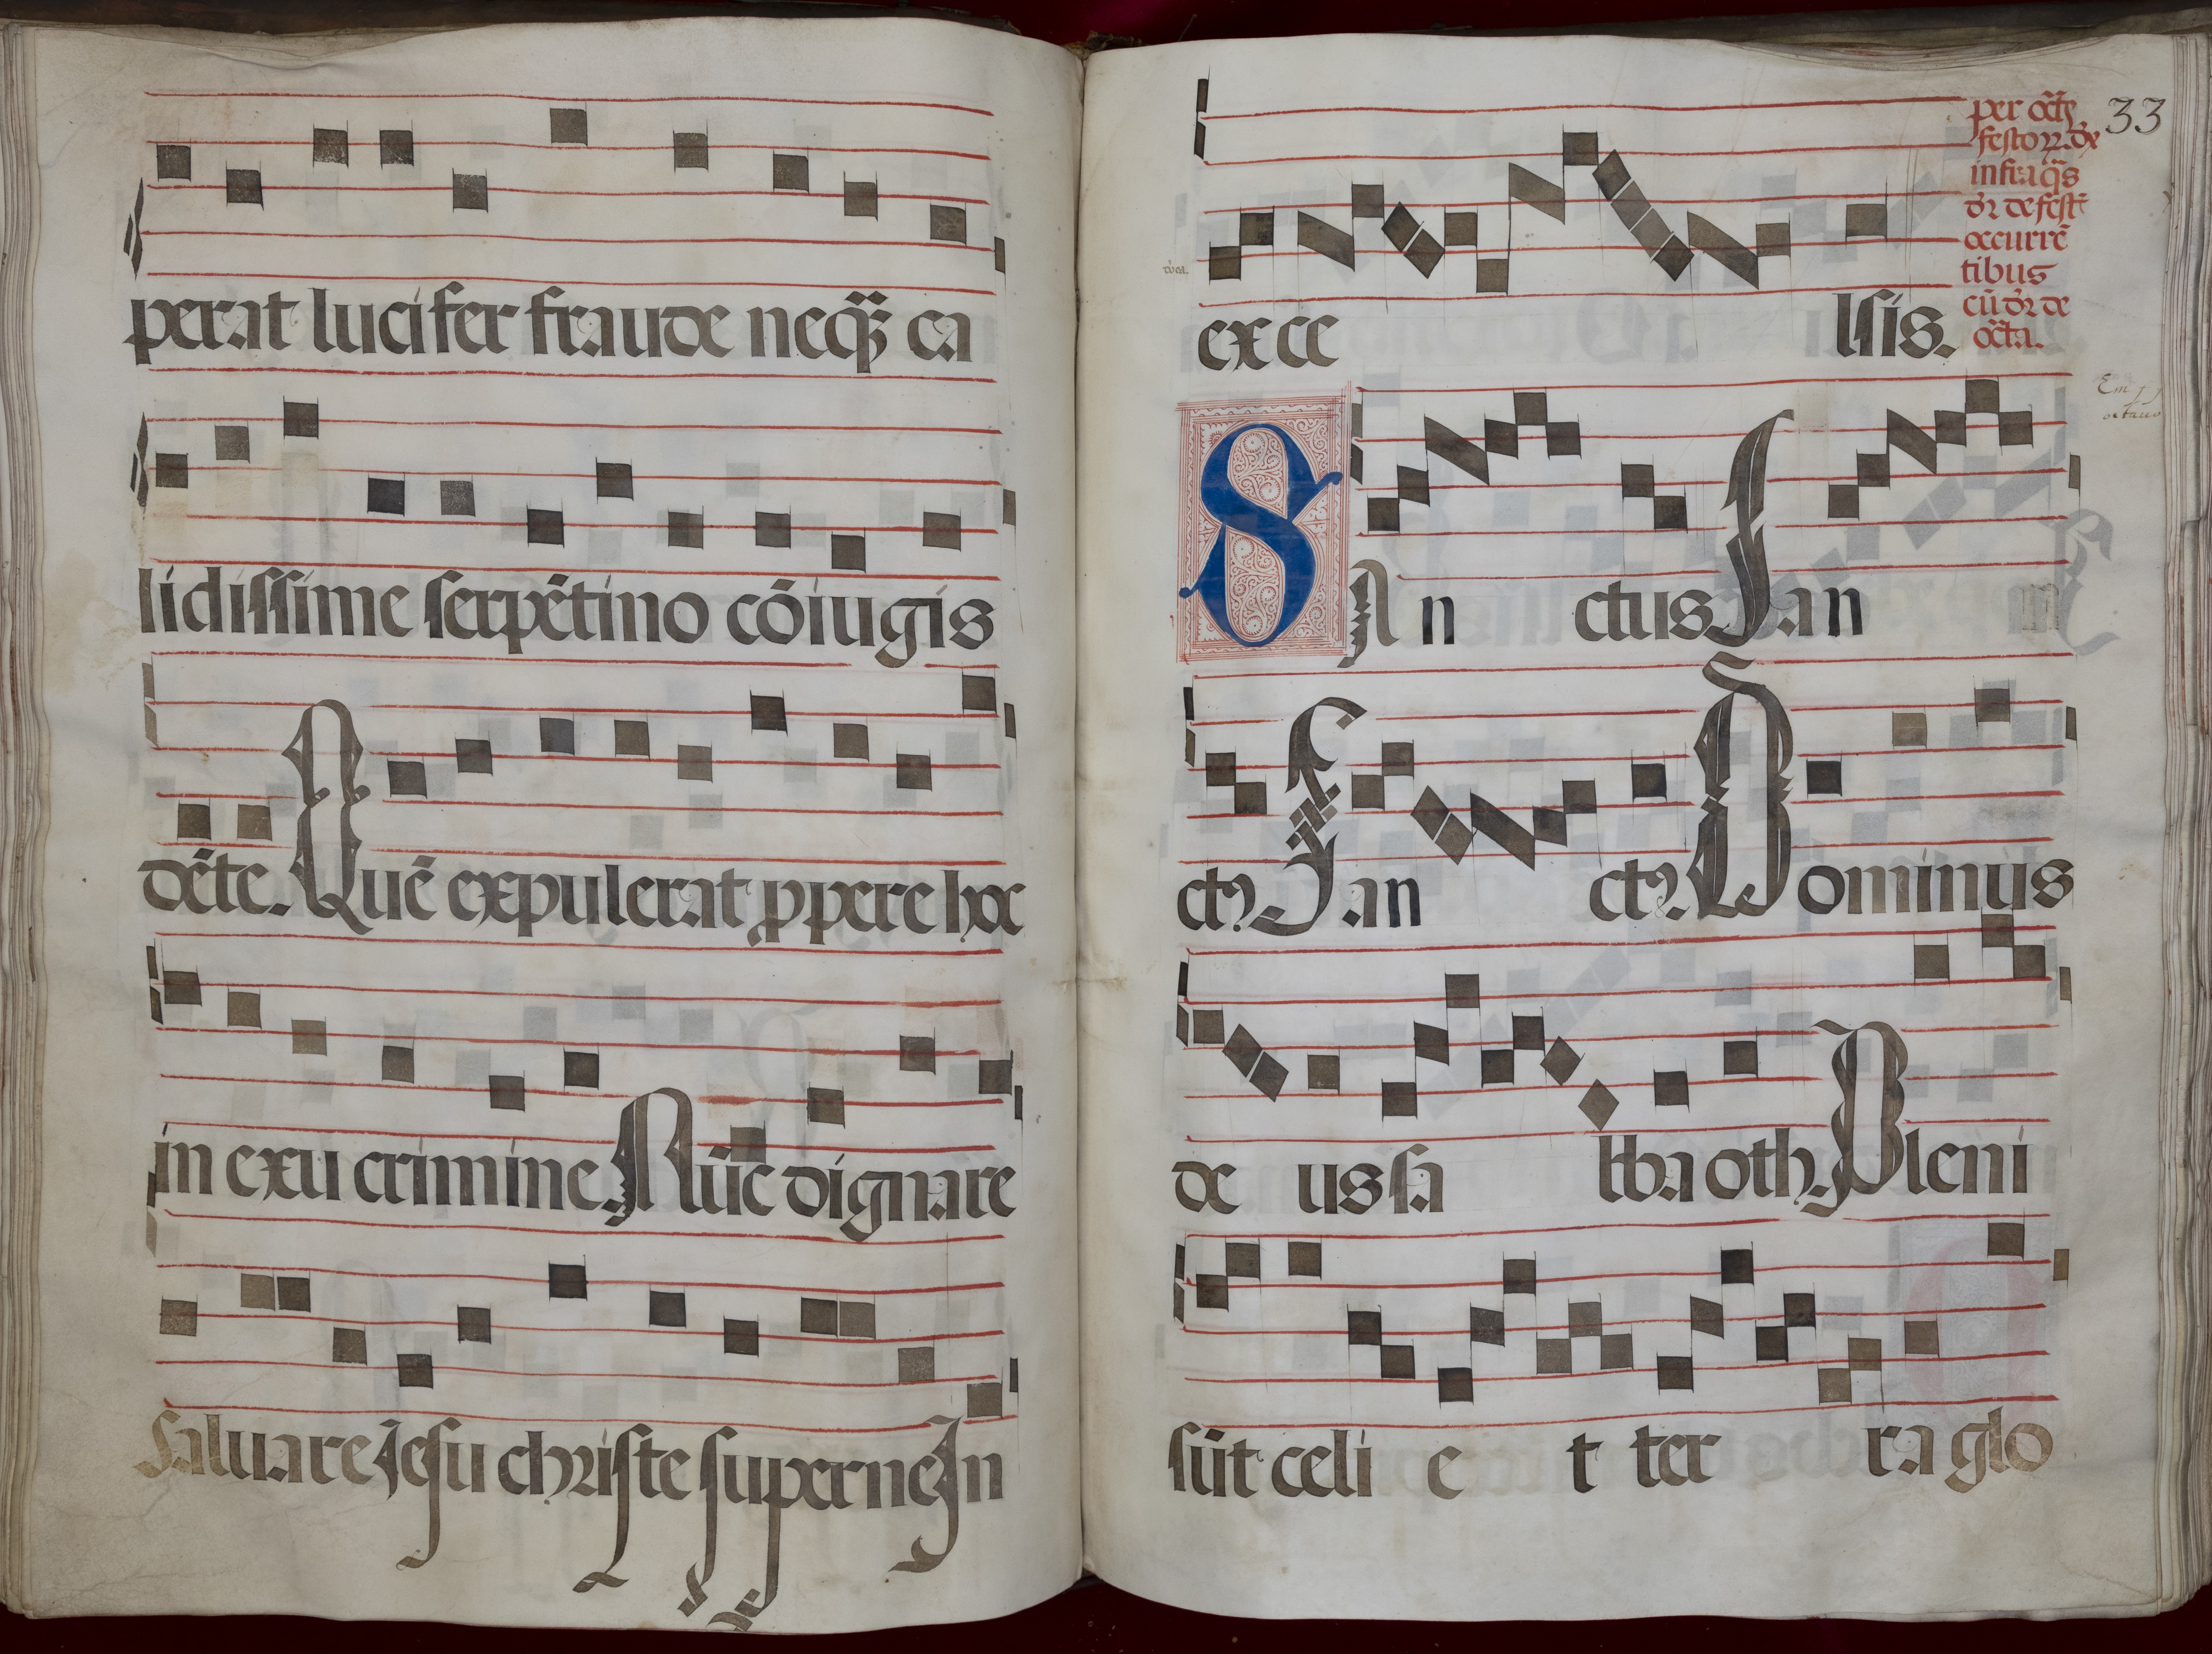 perat lucifer fraude neq̃ꝫ ca
lidissime serpẽtino cõiugis
dẽte. Quẽ expulerat ꝓpere hoc
in exu crimine. Nũc dignare
saluare Jesu christe superne In
33
per oct̃ꝫ
festoꝝ. dx̃
infra q̃s
dr̃ de fest̃
occurrẽ
tibus
cũ dr̃ de
oct̃a.
exce lsis.
Em
octauo
SAn ctus San
ctꝰ San ctꝰ. Dominus
de us sa bba oth. Pleni
sũt celi e t ter ra glo